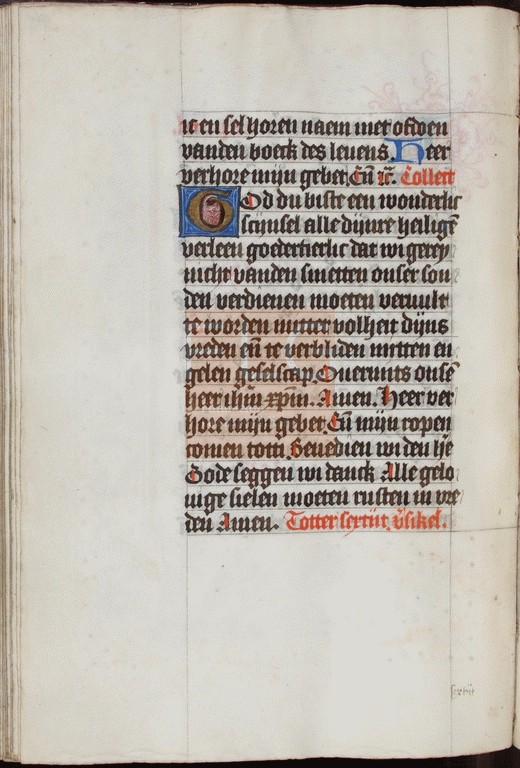 ic en sel horen naem niet ofdoen
vanden boeck des levens. Heer
verhore mijn gebet. Eñ ic̄. Collect
God du biste een wonderlic
scijnsel alle dijnre heiligē
verleen goedertierlic dat wi gerey
nicht vanden smetten onser son
den verdienen moeten vervult
te worden mitter volheit dijns
vreden eñ te verbliden mitten en
gelen geselscap. Overmits onsē
heer ihm̄ xp̄m. Amen. Heer ver
hore mijn gebet. Eñ mijn ropen
comen totti. Benedien wi den he
Gode seggen wi danck Alle gelo
vige sielen moeten rusten in vre
den Amen. Totter sertijt. v̄sikel.